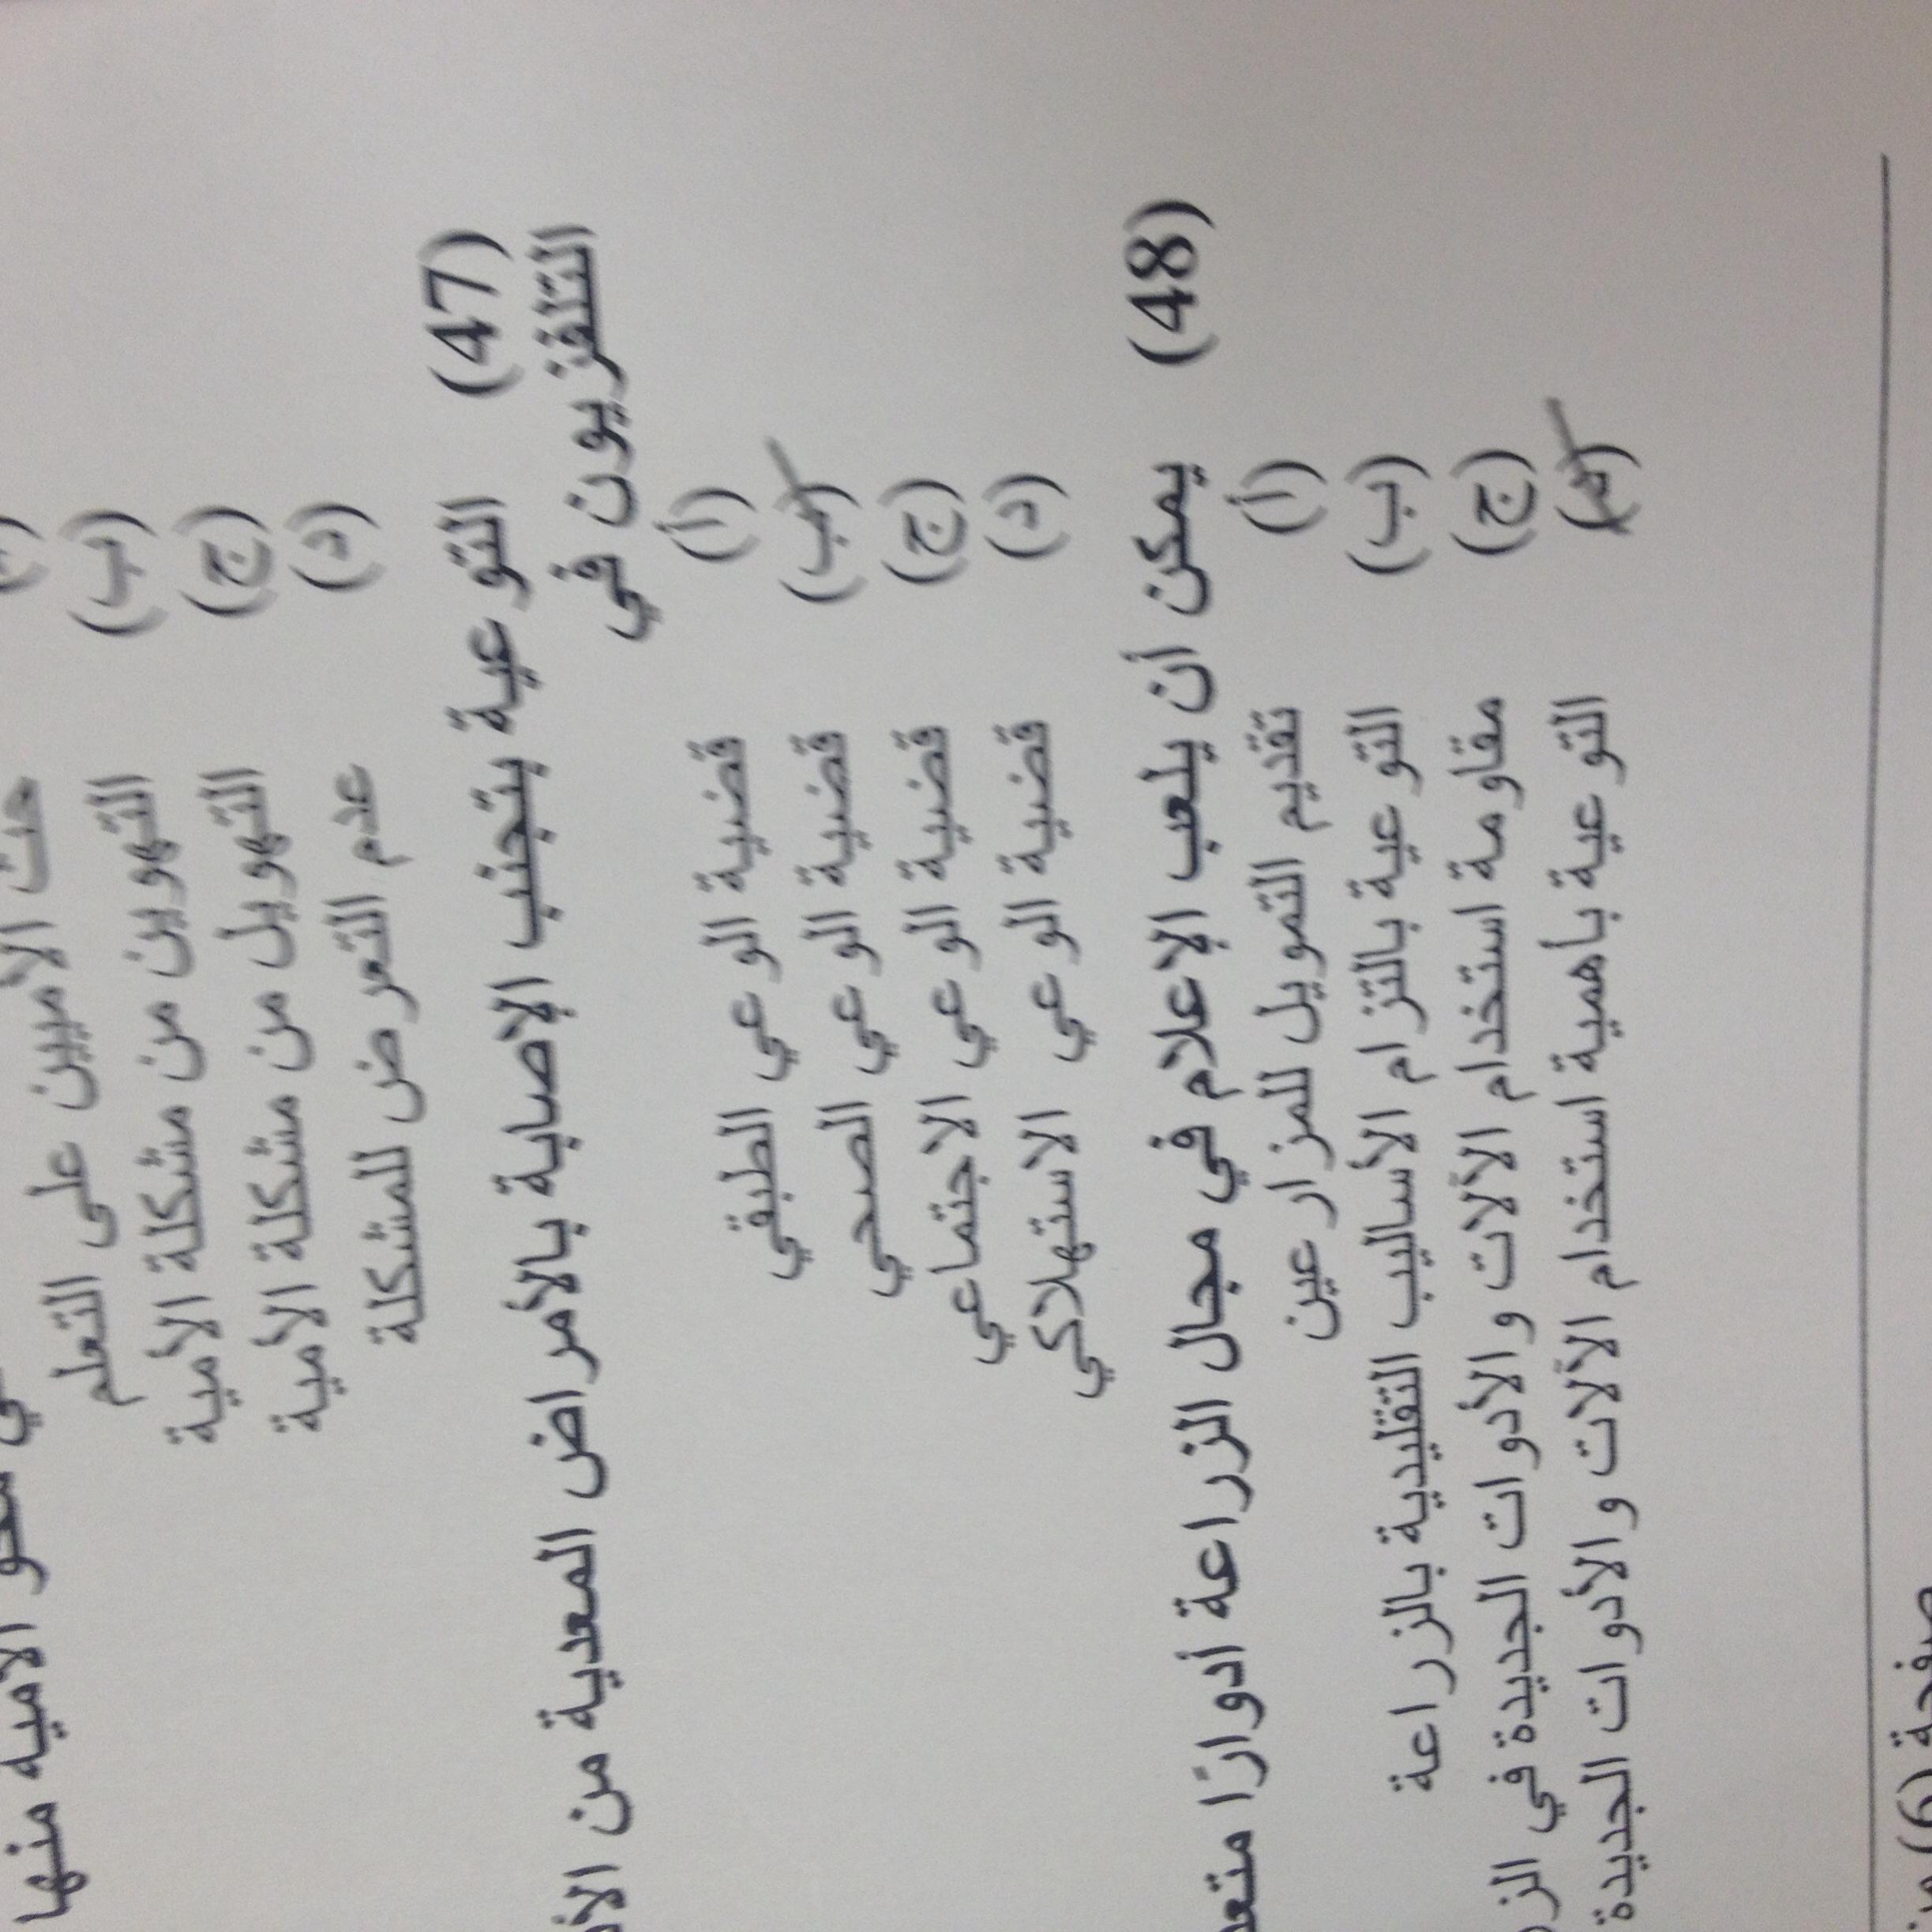 نحو الأمية منها
حث الأميين على التعلم
(ب) التهوين من مشكلة الأمية
(ج) التهويل من مشكلة الأمية
(د) عدم التعرض للمشكلة
(47) التوعية بتجنب الإصابة بالأمراض المعدية من
التلفزيون في
(أ) قضية الوعي الطبقي
(ب) قضية الوعي الصحي
(ج) قضية الوعي الاجتماعي
(د) قضية الوعي الاستهلاكي
(48) يمكن أن يلعب الإعلام في مجال الزراعة أدوارًا
(أ) تقديم التمويل للمزارعين
(ب) التوعية بالتزام الأساليب التقليدية بالزراعة
(ج) مقاومة استخدام الآلات والأدوات الجديدة في
(د) التوعية بأهمية استخدام الآلات والأدوات الجديدة
صفحة (6)